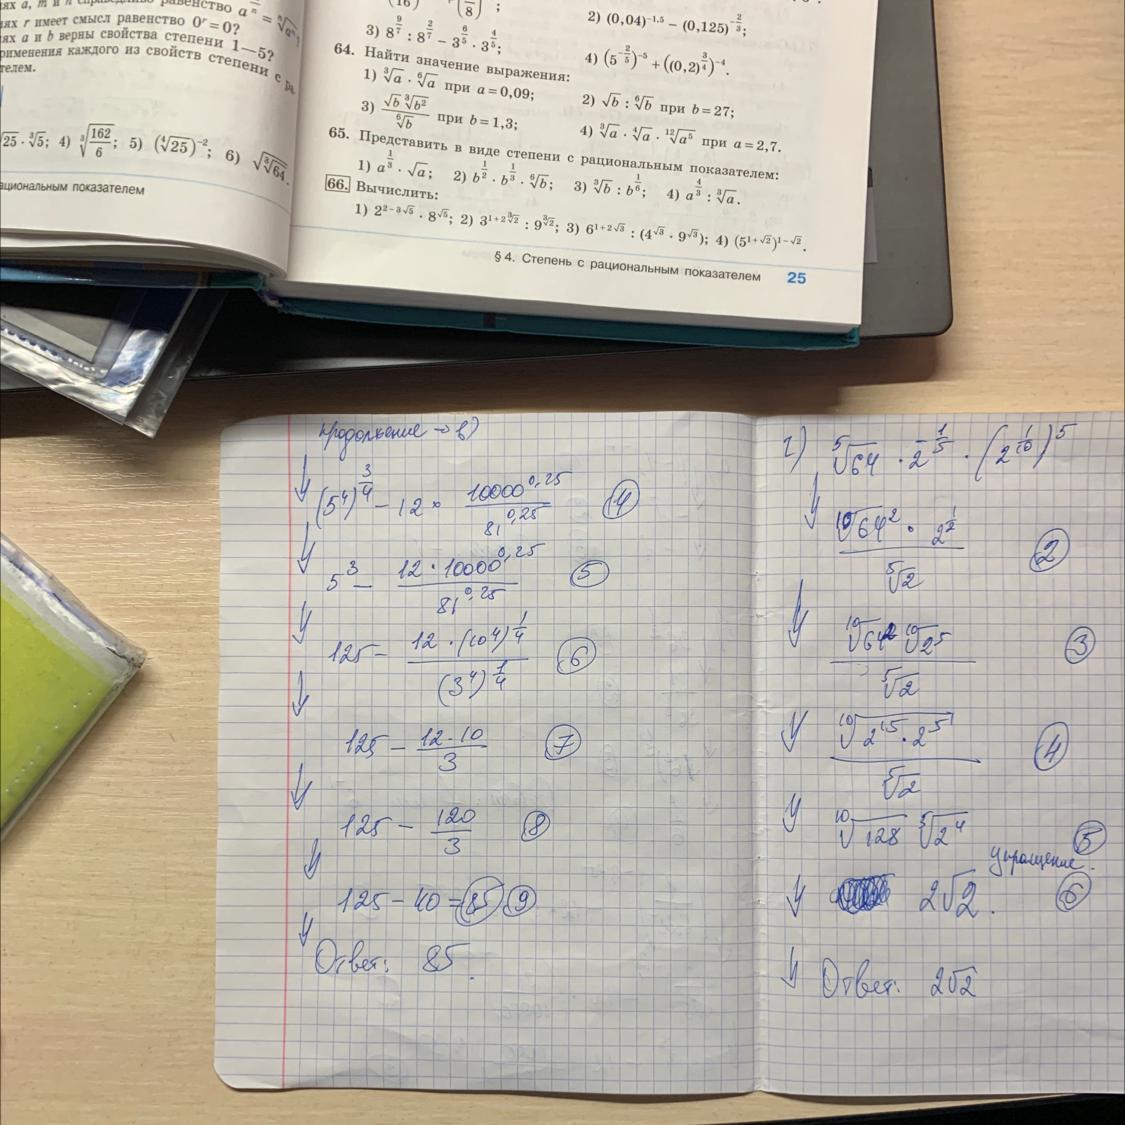 ях a, m и n справедливо равенство a^{m/n} = \sqrt[n]{a^m}?
ях r имеет смысл равенство 0^r=0?
ях a и b верны свойства степени 1—5?
рименения каждого из свойств степени с ра-
телем.
\sqrt{25} · \sqrt[3]{5}; 4) \sqrt[3]{\frac{162}{6}}; 5) (\sqrt[4]{25})^{-2}; 6) \sqrt{\sqrt[3]{64}}.
ациональным показателем
2) (0,04)^{-1,5} − (0,125)^{-2/3};
3) 8^{9/7} : 8^{2/7} − 3^{6/5} · 3^{4/5};
4) (5^{-2/5})^{-5} + ((0,2)^{3/4})^{-4}.
64. Найти значение выражения:
1) \sqrt[3]{a} · \sqrt[6]{a} при a=0,09;
2) \sqrt{b} : \sqrt[6]{b} при b=27;
3) \frac{\sqrt{b} \sqrt[3]{b^2}}{\sqrt[6]{b}} при b=1,3;
4) \sqrt[3]{a} · \sqrt[4]{a} · \sqrt[12]{a^5} при a=2,7.
65. Представить в виде степени с рациональным показателем:
1) a^{1/3} · \sqrt{a}; 2) b^{1/2} · b^{1/3} · \sqrt[6]{b}; 3) \sqrt[3]{b} : b^{1/6}; 4) a^{4/3} : \sqrt[3]{a}.
66. Вычислить:
1) 2^{2−3\sqrt{5}} · 8^{\sqrt{5}}; 2) 3^{1+2\sqrt[3]{2}} : 9^{\sqrt[3]{2}}; 3) 6^{1+2\sqrt{3}} : (4^{\sqrt{3}} · 9^{\sqrt{3}}); 4) (5^{1+\sqrt{2}})^{1−\sqrt{2}}.
§ 4. Степень с рациональным показателем 25
продолжение → в)
(5^4)^{3/4} − 12 · \frac{10000^{0,25}}{81^{0,25}} 4
5^3 − \frac{12 · 10000^{0,25}}{81^{0,25}} 5
125 − \frac{12 · (10^4)^{1/4}}{(3^4)^{1/4}} 6
125 − \frac{12 · 10}{3} 7
125 − \frac{120}{3} 8
125 − 40 = 85 9
Ответ: 85.
г) \sqrt[5]{64} · 2^{-1/5} · (2^{1/10})^5
\frac{\sqrt[10]{64^2} · 2^{1/2}}{\sqrt[5]{2}} 2
\frac{\sqrt[10]{64^2} \sqrt[10]{2^5}}{\sqrt[5]{2}} 3
\frac{\sqrt[10]{2^{15} · 2^5}}{\sqrt[5]{2}} 4
\sqrt[10]{128} \sqrt[5]{2^4} 5
упращение.
2\sqrt{2}. 6
Ответ: 2\sqrt{2}